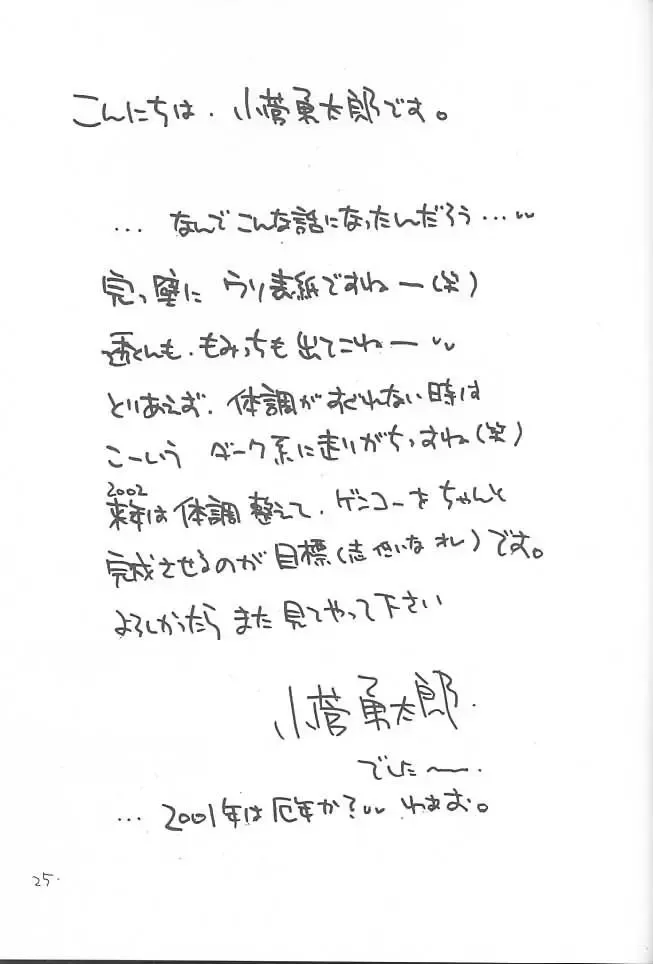 こんにちは、小菅勇太郎です。
... なんでこんな話になったんだろう...
完っ壁に ウリ表紙ですねー(笑)
透くんも、もみっちも出てこねー
とりあえず、体調がすぐれない時は
こーいう ダーク系に走りがちっすね(笑)
2002
来年は体調整えて、ゲンコーをちゃんと
完成させるのが目標(志低いな オレ)です。
よろしかったら また見てやって下さい
小菅勇太郎.
でしたー.
... 2001年は厄年か? わぁお。
25.